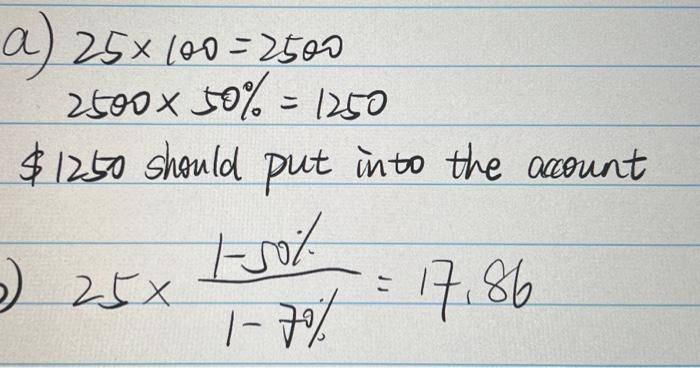 a) 25 × 100 = 2500
2500 × 50% = 1250
$1250 should put into the account
b) 25 × (1-50%)/(1-70%) = 17.86